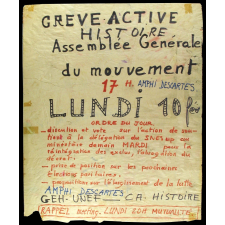 GREVE ACTIVE
HISTOIRE
Assemblée Générale
du mouvement
17 H. AMPHI DESCARTES
LUNDI 10 fév
ORDRE DU JOUR
- discution et vote sur l'action de soutien
à la délégation du SNESup au
ministère demain MARDI pour la
réintégration des exclus, l'abrogation du
décret.
- prise de position sur les prochaines
élections paritaires.
- propositions sur l'élargissement de la lutte
AMPHI DESCARTES
GEH-UNEF — CA. HISTOIRE
RAPPEL meeting LUNDI 20H MUTUALITE